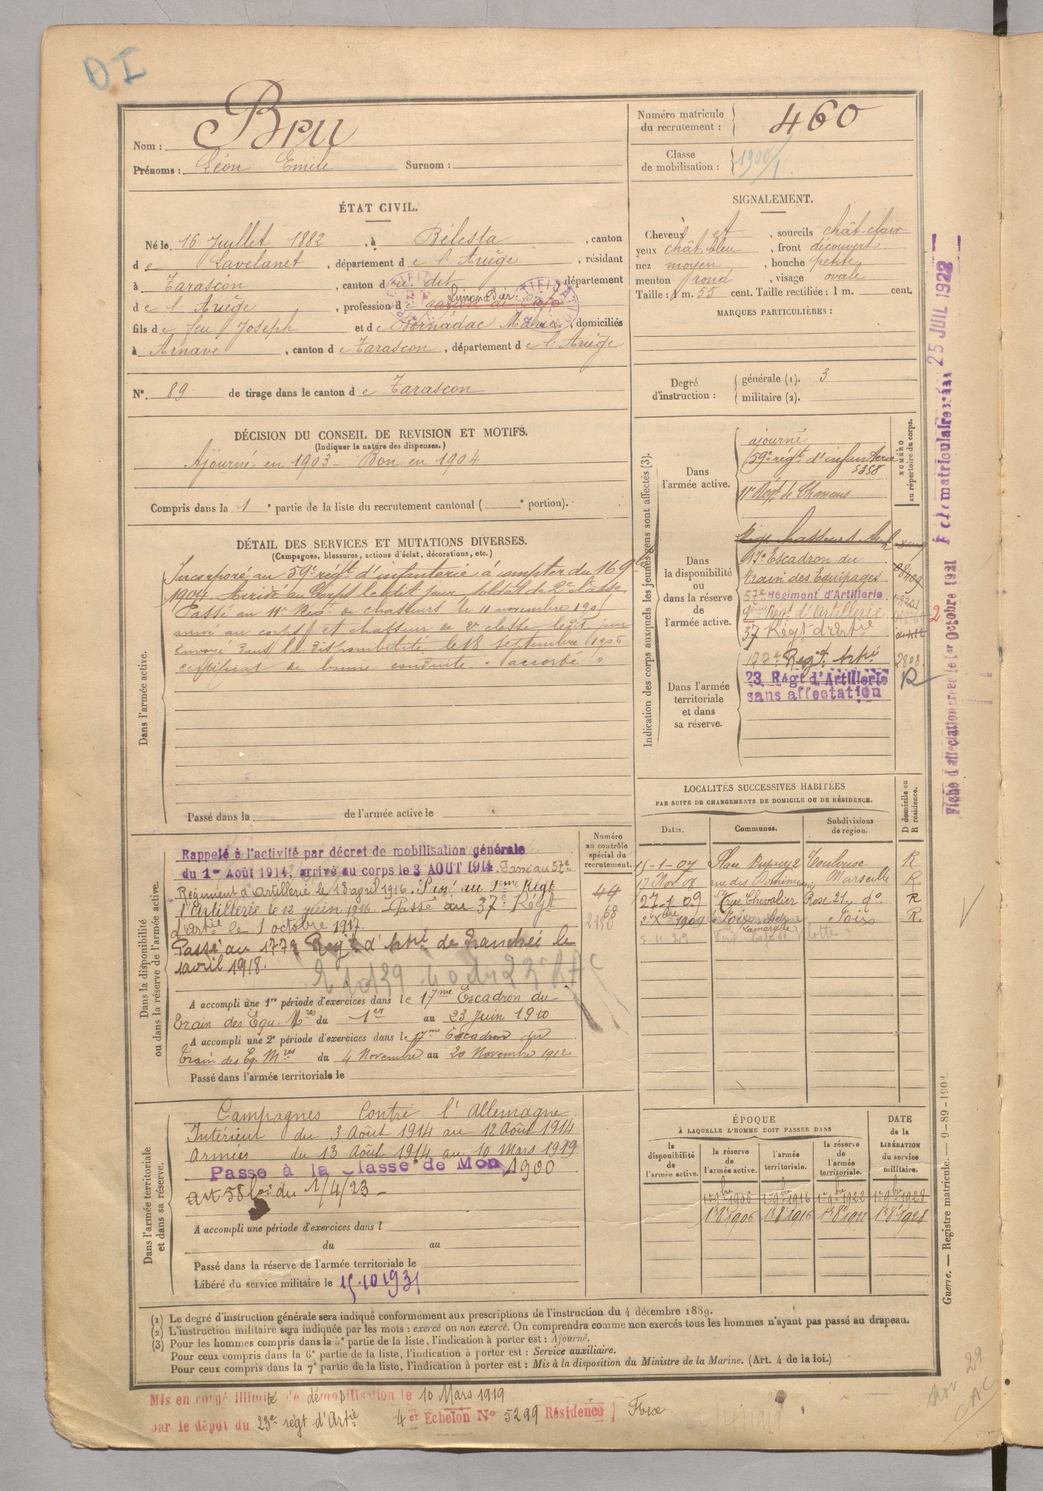 DI
Nom : Bru
Prénoms : Léon Emile Surnom :
Numéro matricule du recrutement : 460
Classe de mobilisation : 1900/1
ÉTAT CIVIL.
Né le 16 Juillet 1882, à Bélesta, canton
d e Lavelanet, département d e l'Ariège, résidant
à Tarascon, canton d e dit, département
d e l'Ariège, profession d
fils d e feu Joseph et d e Marie, domiciliés
à Arnave, canton d e Tarascon, département d e l'Ariège
N° 89 de tirage dans le canton d e Tarascon
SIGNALEMENT.
Cheveux et, sourcils chât-clair
yeux chât bleu, front découvert
nez moyen, bouche petite
menton rond, visage ovale
Taille : 1 m. 55 cent. Taille rectifiée : 1 m. cent.
MARQUES PARTICULIÈRES :
Degré d'instruction : générale (1). 3
militaire (2).
DÉCISION DU CONSEIL DE REVISION ET MOTIFS.
(Indiquer la nature des dispenses.)
Ajourné en 1903 - Bon en 1904
Compris dans la 1e partie de la liste du recrutement cantonal ( e portion).
DÉTAIL DES SERVICES ET MUTATIONS DIVERSES.
(Campagnes, blessures, actions d'éclat, décorations, etc.)
Dans l'armée active.
Incorporé au 59e régt d'infanterie à compter du 16 9bre
1904. Arrivé au Corps le dit jour soldat de 2e classe
Passé au 11e Régt de chasseurs le 11 novembre 190
arrivé au corps et chasseur de 2e classe le dit jour
Envoyé dans la disponibilité le 18 septembre 1906
certificat de bonne conduite "accordé"
Passé dans la de l'armée active le
Indication des corps auxquels les jeunes gens sont affectés (3).
NUMÉRO au répertoire du corps.
Dans l'armée active.
ajourné
59e régt d'infanterie
5358
11e Régt de Chasseurs
Dans la disponibilité ou dans la réserve de l'armée active.
17e Escadron du
train des Equipages
57e Régiment d'Artillerie
1er Régt d'Artillerie
37 Régt d'Artie
Dans l'armée territoriale et dans sa réserve.
177e Regt Artie
2808
23 Régt d'Artillerie R
sans affectation
Dans la disponibilité ou dans la réserve de l'armée active.
Numéro au contrôle spécial du recrutement.
Rappelé à l'activité par décret de mobilisation générale
du 1er Août 1914, arrivé au corps le 3 AOUT 1914. Passé au 57e
Régiment d'Artillerie le 18 avril 1916. Passé au 1er Régt
d'Artillerie le 12 juin 1916. Passé au 37e Régt
d'Artie le 1 octobre 1917.
Passé au 177e Regt d'Artie de Tranchée le
1 avril 1918.
A accompli une 1re période d'exercices dans le 17me Escadron du
Train des Equ. Mres du 1er au 23 juin 1910
A accompli une 2e période d'exercices dans le 17me Escadron du
train des Eq. Mres du 4 Novembre au 20 Novembre 1912
Passé dans l'armée territoriale le
LOCALITÉS SUCCESSIVES HABITÉES
PAR SUITE DE CHANGEMENTS DE DOMICILE OU DE RÉSIDENCE.
Dates. Communes. Subdivisions de région. D domicile ou R résidence.
15-1-07 Place Dupuy 2 Toulouse R
17 Nov 08 rue des Dominicains Marseille R
27-1-09 Rue Chevalier Rose 21, do R
1909 Foix R.
Dans l'armée territoriale et dans sa réserve.
Campagnes Contre l'Allemagne
Intérieur du 3 Août 1914 au 12 Août 1914
Armées du 13 Août 1914 au 10 Mars 1919
Passé à la Classe de Mon 1900
art 58 loi du 1/4/23 -
A accompli une période d'exercices dans l
du au
Passé dans la réserve de l'armée territoriale le
Libéré du service militaire le 15.10.1931
ÉPOQUE
À LAQUELLE L'HOMME DOIT PASSER DANS
la disponibilité de l'armée active. la réserve de l'armée active. l'armée territoriale. la réserve de l'armée territoriale. DATE de la LIBÉRATION du service militaire.
1er 9bre 1906 1er 9bre 1916 1er 9bre 1922 1er 9bre 1928
(1) Le degré d'instruction générale sera indiqué conformément aux prescriptions de l'instruction du 4 décembre 1889.
(2) L'instruction militaire sera indiquée par les mots : exercé ou non exercé. On comprendra comme non exercés tous les hommes n'ayant pas passé au drapeau.
(3) Pour les hommes compris dans la 5e partie de la liste, l'indication à porter est : Ajourné.
Pour ceux compris dans la 6e partie de la liste, l'indication à porter est : Service auxiliaire.
Pour ceux compris dans la 7e partie de la liste, l'indication à porter est : Mis à la disposition du Ministre de la Marine. (Art. 4 de la loi.)
Mis en congé illimité de démobilisation le 10 Mars 1919
par le dépôt du 23e régt d'Artie 4er Echelon N° 5299 Résidence Foix
Guerre. — Registre matricule. — 9-89-1902.
Fiche d'affectation créée le 1er Octobre 1921 Fiche matriculaire créée 25 JUIL 1922